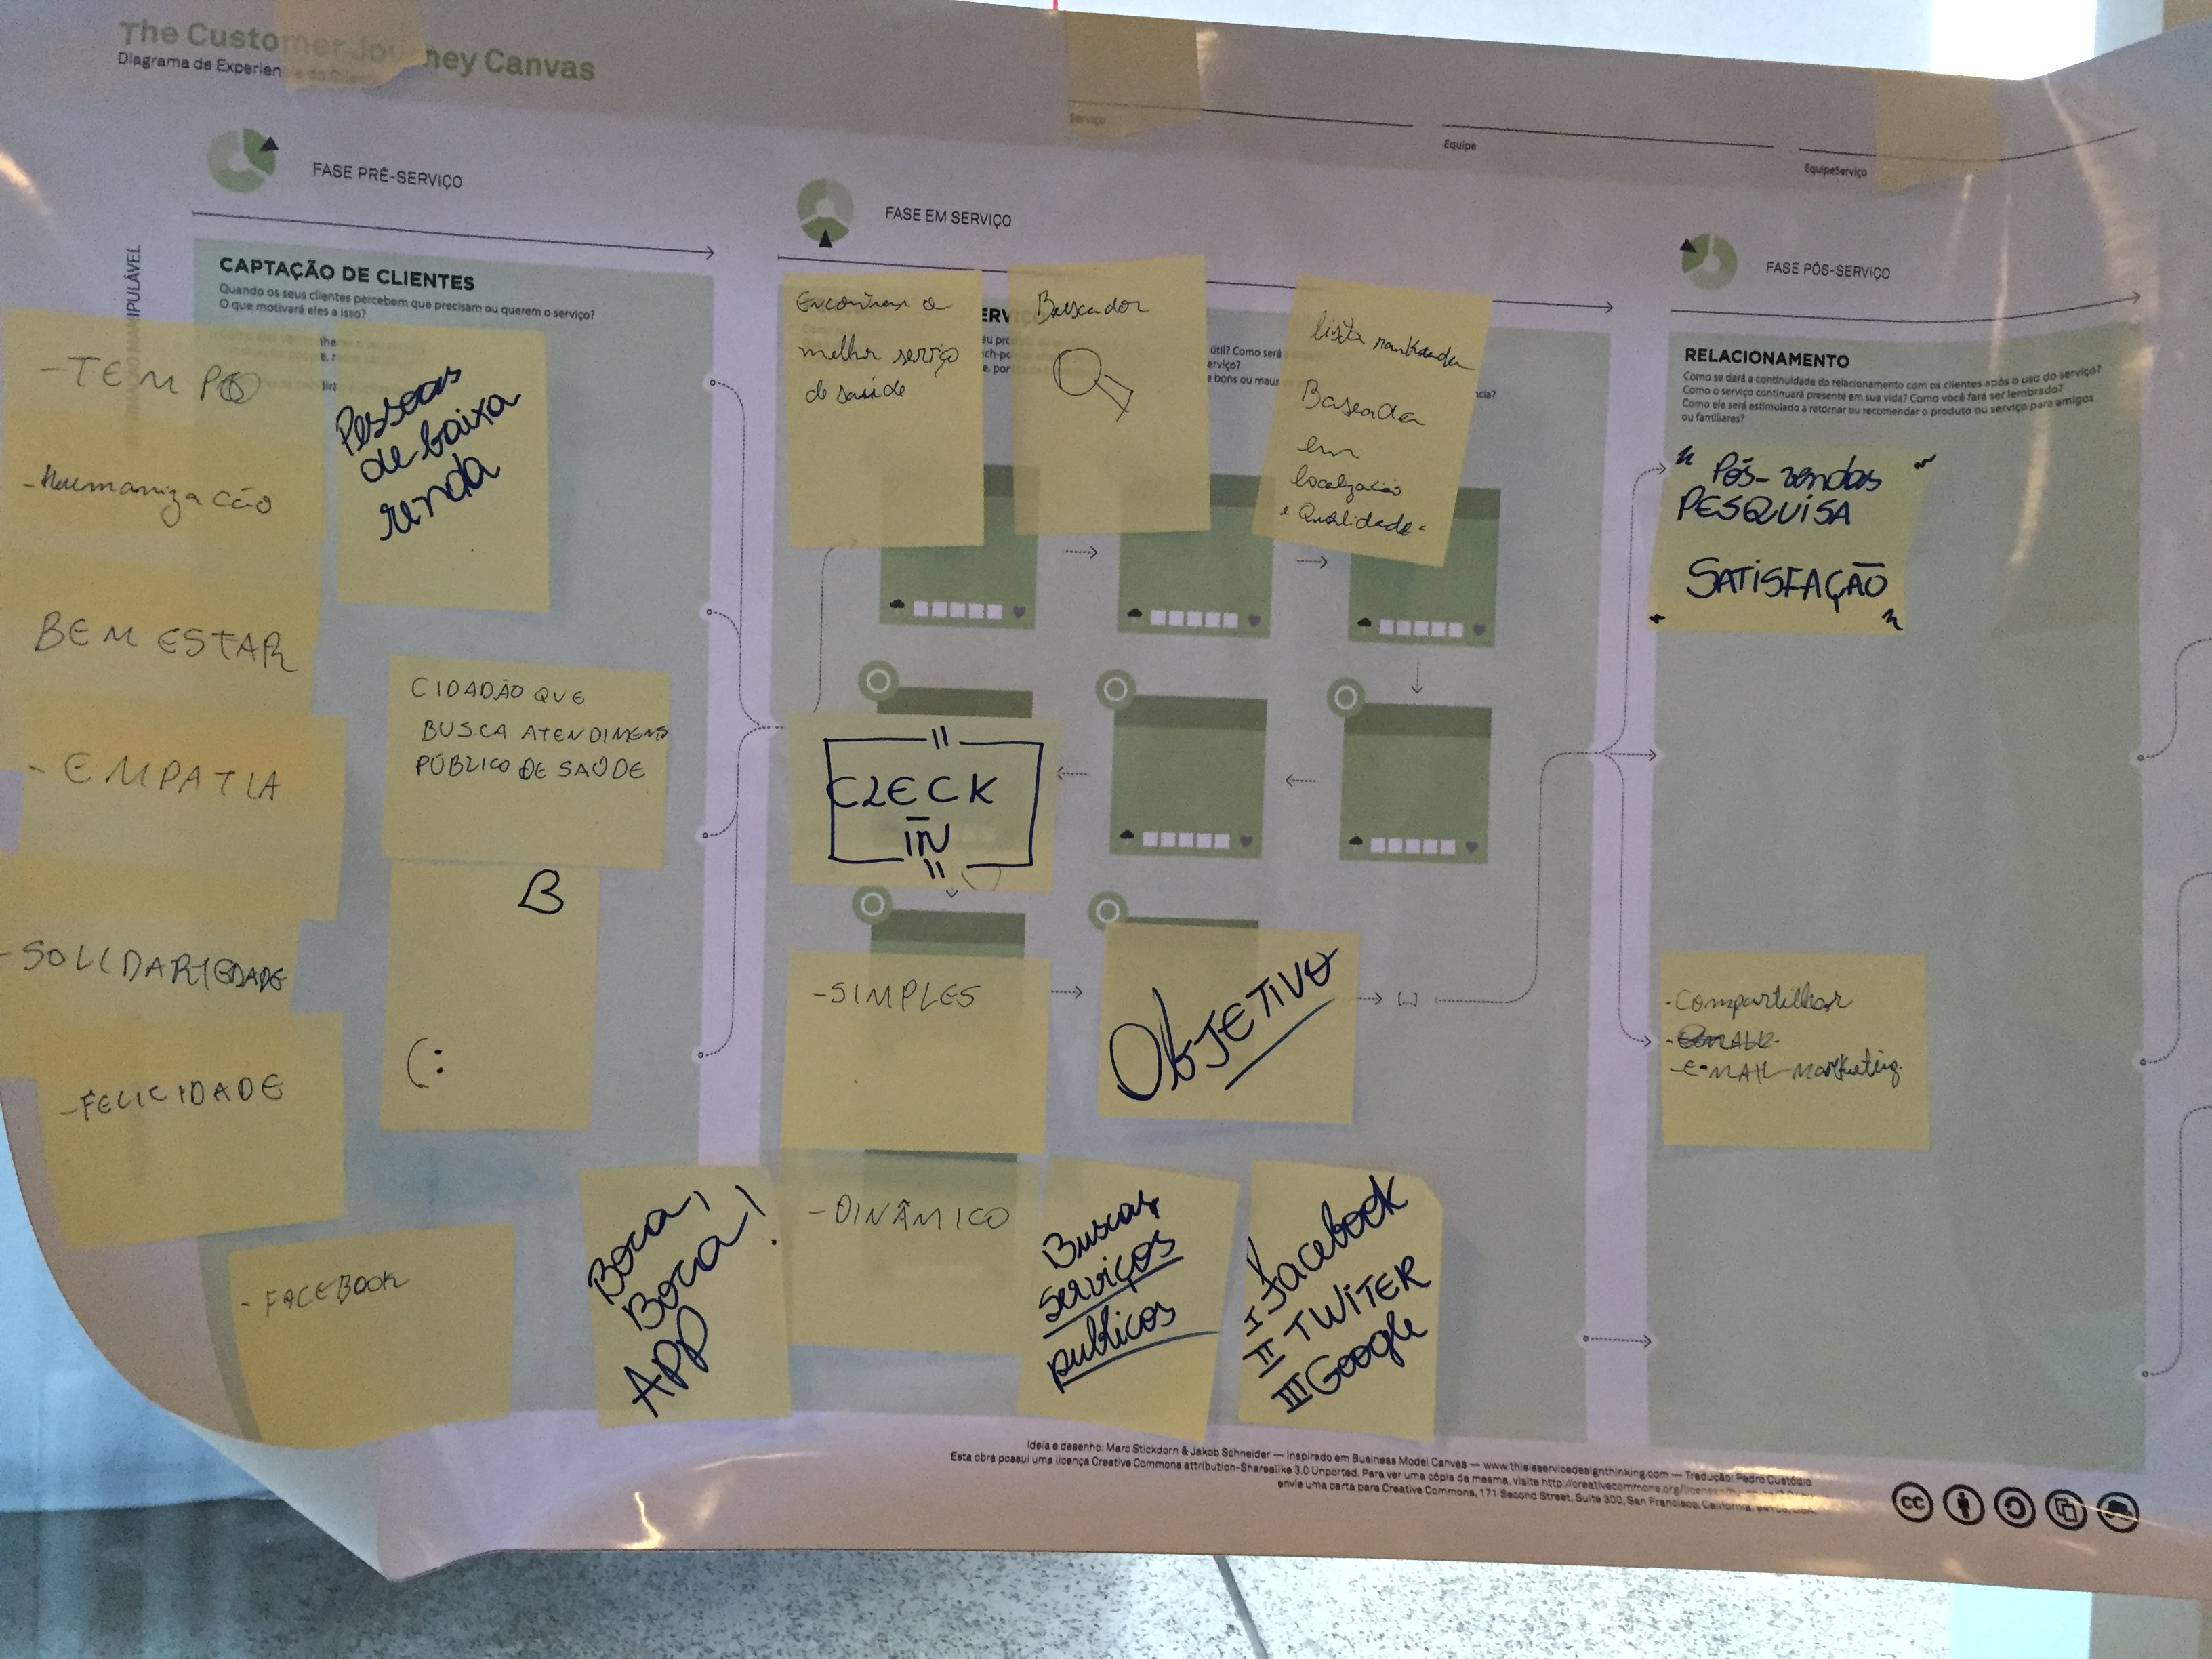 The Customer Journey Canvas
Diagrama de Experiencia do Cliente
Serviço
Equipe
EquipeServiço
FASE PRÉ-SERVIÇO
FASE EM SERVIÇO
FASE PÓS-SERVIÇO
CAPTAÇÃO DE CLIENTES
Quando os seus clientes percebem que precisam ou querem o serviço?
O que motivará eles a isso?
- TEMPO
- Humanização
BEM ESTAR
- EMPATIA
- SOLIDARIEDADE
- FELICIDADE
- FACEBOOK
Pessoas
de baixa
renda
CIDADÃO QUE
BUSCA ATENDIMENTO
PÚBLICO DE SAÚDE
B
(:
Boca,
Boca!
APP
Encontrar o
melhor serviço
de saúde
Buscador
útil? Como será
erviço?
e bons ou maus
ncia?
lista rankeada
Baseada
em
localização
e Qualidade.
" CLECK
IN "
- SIMPLES
OBJETIVO
[...]
- DINÂMICO
Buscar
serviços
publicos
I Facebook
II TWITER
III Google
RELACIONAMENTO
Como se dará a continuidade do relacionamento com os clientes após o uso do serviço?
Como o serviço continuará presente em sua vida? Como você fará ser lembrado?
Como ele será estimulado a retornar ou recomendar o produto ou serviço para amigos
ou familiares?
" Pós-vendas "
PESQUISA
SATISFAÇÃO
- Compartilhar
- E-MAIL Marketing.
Ideia e desenho: Marc Stickdorn & Jakob Schneider — Inspirado em Business Model Canvas — www.thisisservicedesignthinking.com — Tradução: Pedro Custódio
Esta obra possui uma licença Creative Commons attribution-Sharealike 3.0 Unported. Para ver uma cópia da mesma, visite http://creativecommons.org/licenses/by-sa/3.0/
envie uma carta para Creative Commons, 171 Second Street, Suite 300, San Francisco, California, 94105, USA.
cc